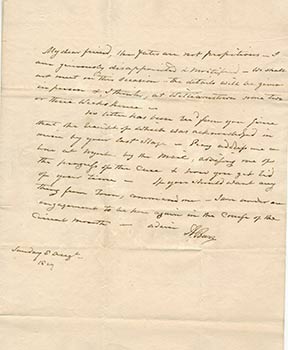 My dear friend, the fates are not propitious - I
am grievously disappointed & mortified - We shall
not meet on this occasion - the details will be given
in person & I think, at Williamstown some two
or three Weeks hence -
No letter has been rec'd from you since
that the receipt of which was acknowledged in
mine by your last Stage - Pray address me
here at by the Mail, advising me of
the progress of the Cure & how you get rid
of your - If you should want any
thing from Town, command me - I am under an
engagement to be here again in the Course of the
Current month - adieu
A Burr
Sunday 2 Aug